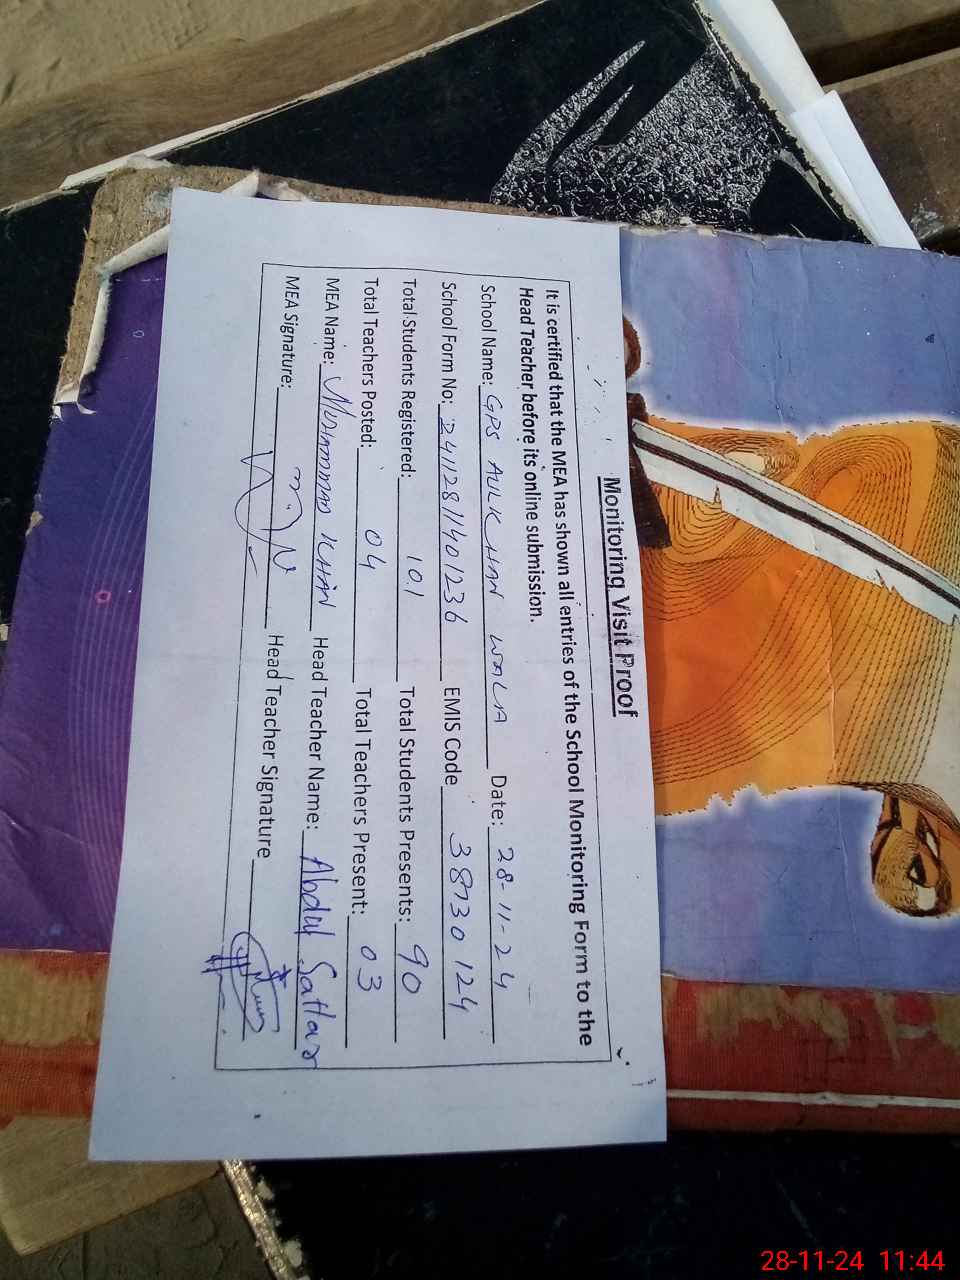 Monitoring Visit Proof
It is certified that the MEA has shown all entries of the School Monitoring Form to the
Head Teacher before its online submission.
School Name: GPS AULK HAN WALA Date: 28-11-24
School Form No: 24112811401236 EMIS Code 38730124
Total Students Registered: 101 Total Students Presents: 90
Total Teachers Posted: 04 Total Teachers Present: 03
MEA Name: MUHAMMAD KHAN Head Teacher Name: Abdul Sattar
MEA Signature: Head Teacher Signature
28-11-24 11:44